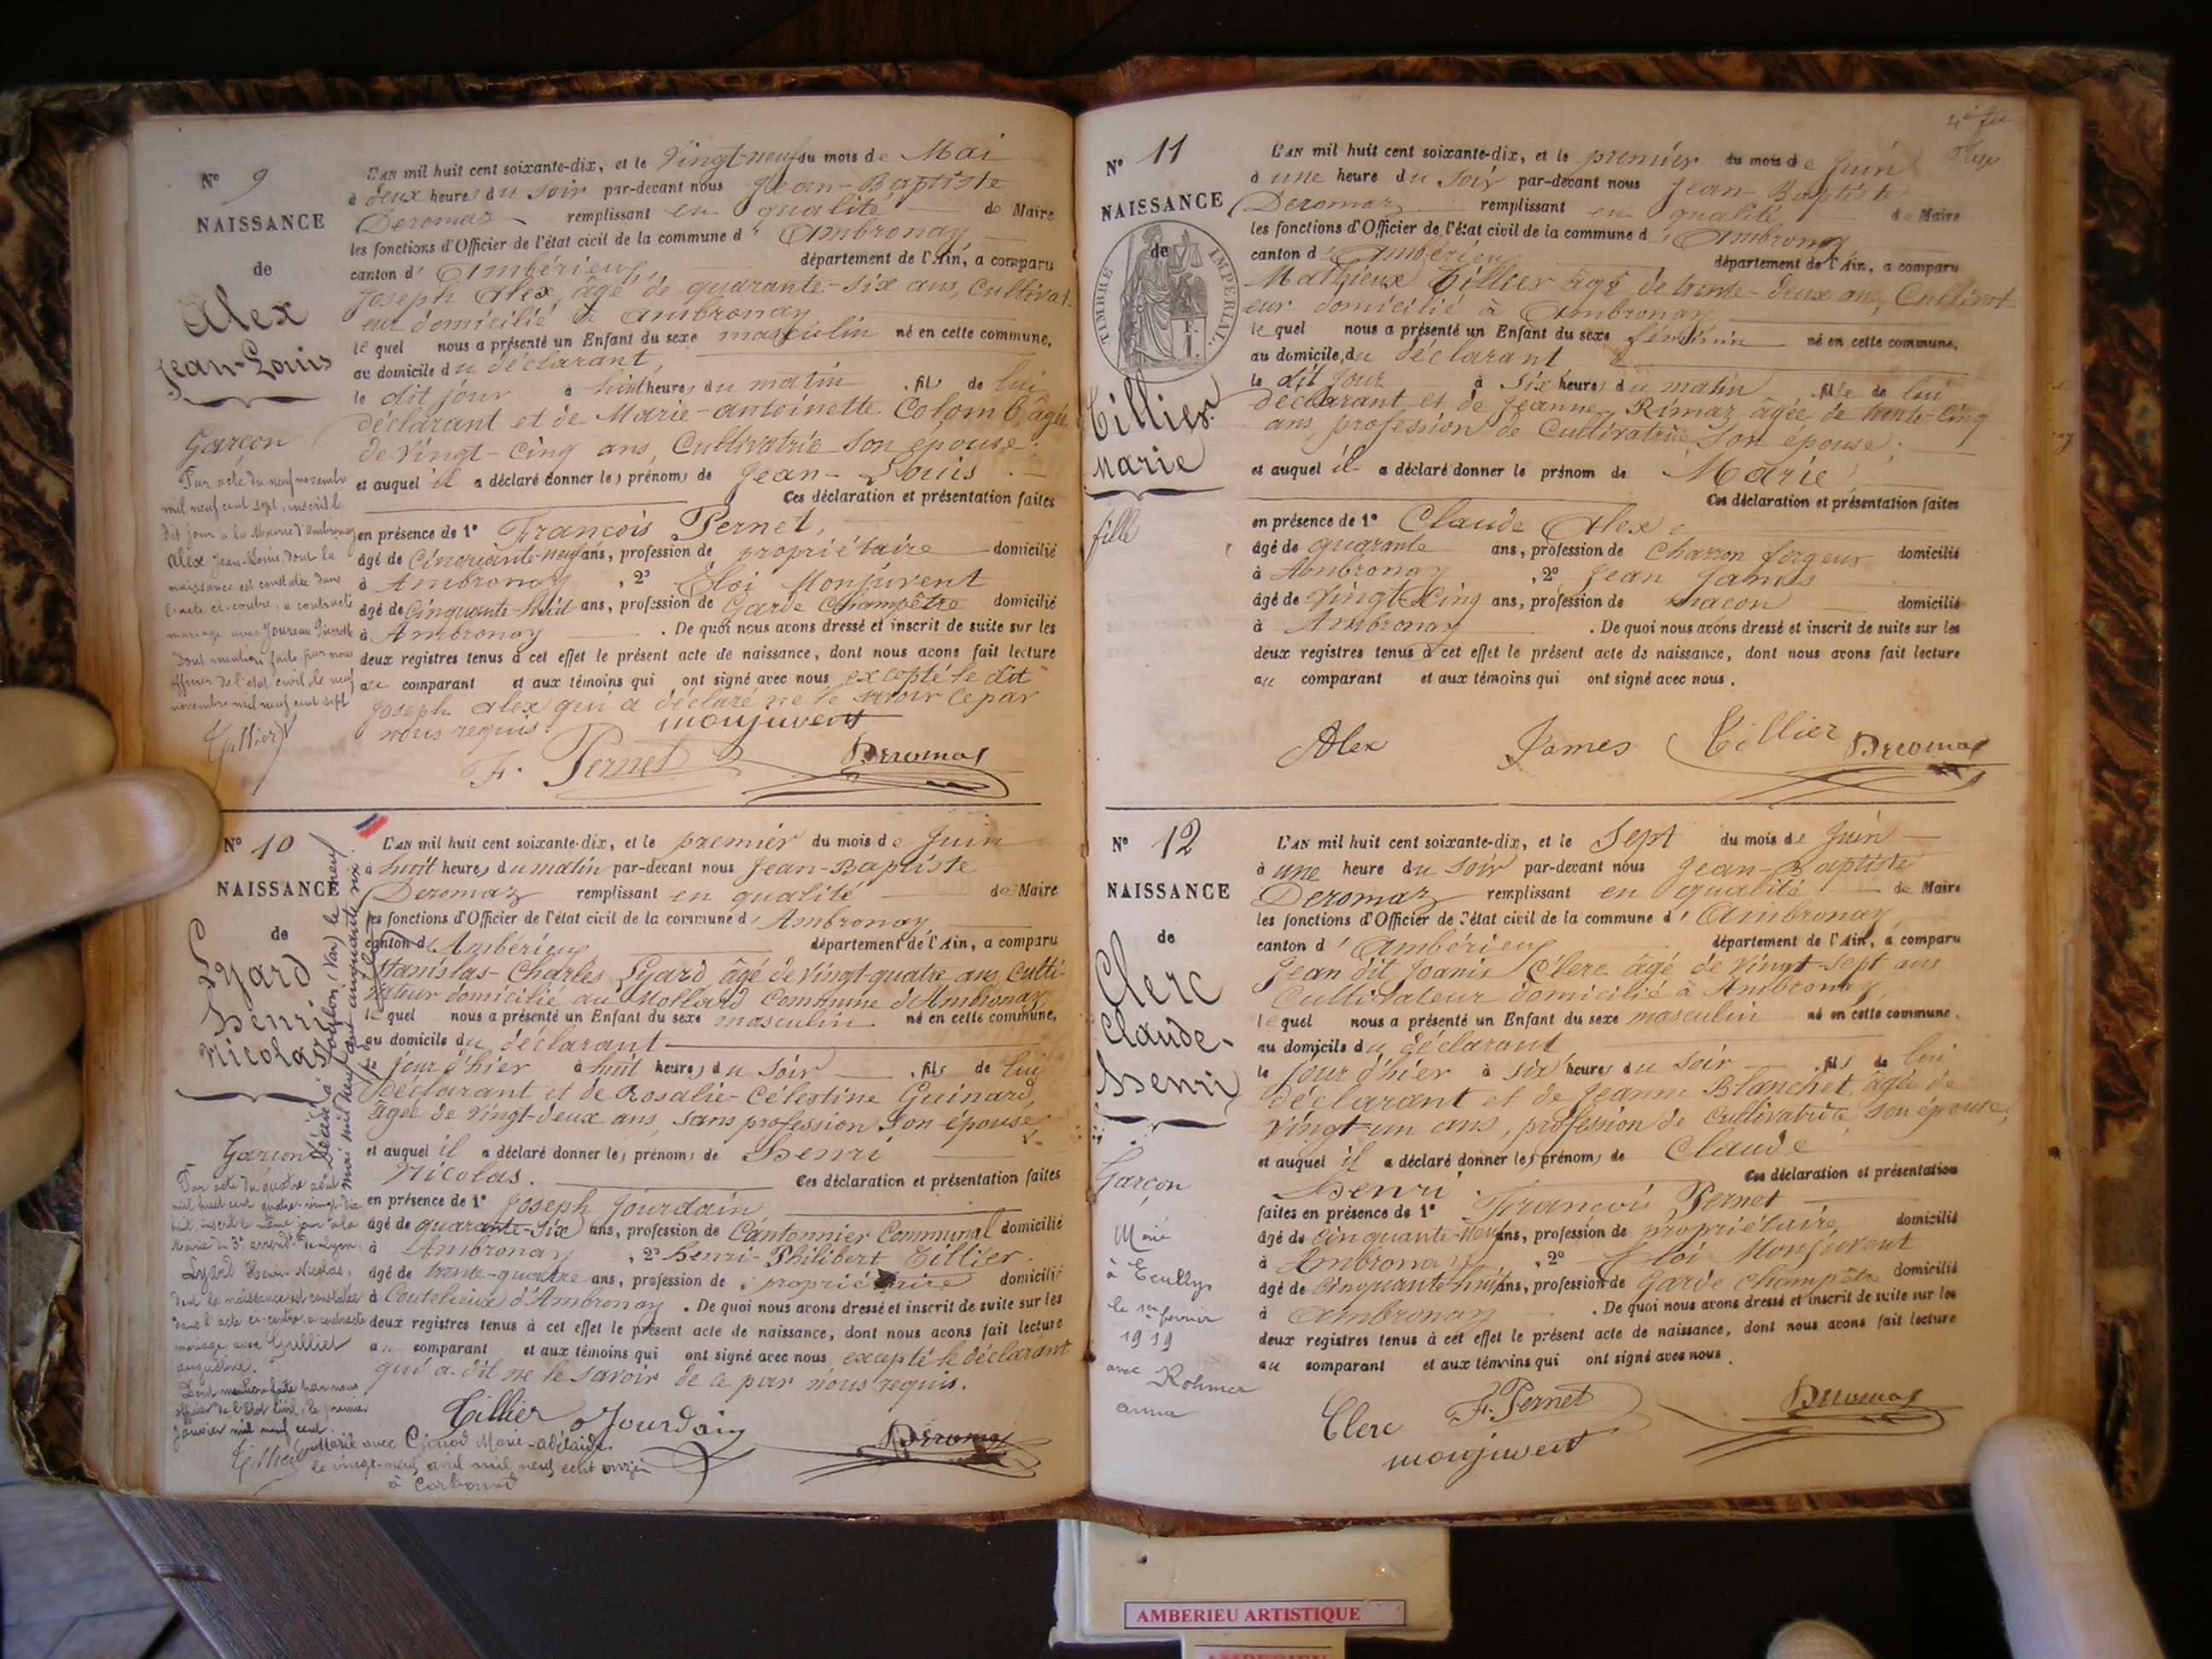 N° 9
NAISSANCE
de
Alex
Jean-Louis
Garçon
Par acte du neuf novembre
mil neuf cent sept, inscrit le
dit jour à la Mairie d'Ambronay
Alex Jean-Louis, dont la
naissance est constatée dans
l'acte ci-contre, a contracté
mariage avec Joureau Pierrette
Dont mention faite par nous
officier de l'état civil, le neuf
novembre mil neuf cent sept
Tillier
L'AN mil huit cent soixante-dix, et le Vingt-neuf du mois de Mai
à deux heures du soir par-devant nous Jean-Baptiste
Deromaz remplissant en qualité de Maire
les fonctions d'Officier de l'état civil de la commune d' Ambronay
canton d' Ambérieux département de l'Ain, a comparu
Joseph Alex, âgé de quarante-six ans, Cultivat-
eur domicilié à Ambronay
lequel nous a présenté un Enfant du sexe masculin né en cette commune,
au domicile du déclarant,
le dit jour à huit heures du matin, fils de lui
déclarant et de Marie-antoinette Colomb, âgée
de vingt-cinq ans, Cultivatrice son épouse;
et auquel il a déclaré donner les prénoms de Jean-Louis.
Ces déclaration et présentation faites
en présence de 1° François Pernet,
âgé de Cinquante-neuf ans, profession de propriétaire domicilié
à Ambronay, 2° Eloi Monjuvent
âgé de Cinquante-huit ans, profession de Garde Champêtre domicilié
à Ambronay. De quoi nous avons dressé et inscrit de suite sur les
deux registres tenus à cet effet le présent acte de naissance, dont nous avons fait lecture
au comparant et aux témoins qui ont signé avec nous excepté le dit
Joseph Alex qui a déclaré ne le savoir ce par
nous requis.
monjuvent
F. Pernet Deromas
N° 10
NAISSANCE
de
Lyard
Henri
Nicolas
Garçon
Décédé à Toulon (Var) le neuf
mai mil neuf cent cinquante six.
Par acte du quatre août
mil huit cent quatre-vingt-dix
huit, inscrit le même jour à la
Mairie du 3e arrondt de Lyon,
Lyard Henri-Nicolas,
dont la naissance est constatée
dans l'acte ci-contre, a contracté
mariage avec Grilliet
augustine.
Dont mention faite par nous
officier de l'Etat civil, le premier
Janvier mil neuf cent.
Tillier
L'AN mil huit cent soixante-dix, et le premier du mois de Juin
à huit heures du matin par-devant nous Jean-Baptiste
Deromaz remplissant en qualité de Maire
les fonctions d'Officier de l'état civil de la commune d' Ambronay
canton d' Ambérieux département de l'Ain, a comparu
Stanislas-Charles Lyard âgé de vingt-quatre ans, culti-
vateur domicilié au Mollard Commune d'Ambronay,
lequel nous a présenté un Enfant du sexe masculin né en cette commune,
au domicile du déclarant
le jour d'hier à huit heures du soir, fils de lui
déclarant et de Rosalie-Célestine Guinard,
âgée de vingt-deux ans, sans profession son épouse,
et auquel il a déclaré donner les prénoms de Henri
Nicolas. Ces déclaration et présentation faites
en présence de 1° Joseph Jourdain
âgé de quarante-six ans, profession de Cantonnier Communal domicilié
à Ambronay, 2° Henri-Philibert Tillier.
âgé de trente-quatre ans, profession de propriétaire domicilié
à Coutelieux d'Ambronay. De quoi nous avons dressé et inscrit de suite sur les
deux registres tenus à cet effet le présent acte de naissance, dont nous avons fait lecture
au comparant et aux témoins qui ont signé avec nous excepté le déclarant
qui a dit ne le savoir de ce par nous requis.
Tillier Jourdain Deromas
avec Marie-adélaïde
le vingt-neuf avril mil neuf cent onze
à
N° 11
NAISSANCE
de
TIMBRE IMPERIAL.
Tillier
Marie
fille
L'AN mil huit cent soixante-dix, et le premier du mois de Juin
à une heure du soir par-devant nous Jean-Baptiste
Deromaz remplissant en qualité de Maire
les fonctions d'Officier de l'état civil de la commune d' Ambronay
canton d' Ambérieux département de l'Ain, a comparu
Mathieux Tillier âgé de trente-deux ans, Cultivat
eur domicilié à Ambronay
lequel nous a présenté un Enfant du sexe féminin né en cette commune,
au domicile du déclarant
le dit jour à six heures du matin, fille de lui
déclarant et de Jeanne Rimaz âgée de trente-cinq
ans, profession de Cultivatrice son épouse;
et auquel il a déclaré donner le prénom de Marie
Ces déclaration et présentation faites
en présence de 1° Claude Alex
âgé de quarante ans, profession de Charron forgeur domicilié
à Ambronay, 2° Jean James
âgé de Vingt Cinq ans, profession de Macon domicilié
à Ambronay. De quoi nous avons dressé et inscrit de suite sur les
deux registres tenus à cet effet le présent acte de naissance, dont nous avons fait lecture
au comparant et aux témoins qui ont signé avec nous.
Alex James Tillier Deromas
N° 12
NAISSANCE
de
Clerc
Claude-
Henri
Garçon
Marié
à Ecully
le 1er février
1919
avec Rohmer
anna
L'AN mil huit cent soixante-dix, et le Sept du mois de Juin
à une heure du soir par-devant nous Jean-Baptiste
Deromaz remplissant en qualité de Maire
les fonctions d'Officier de l'état civil de la commune d' Ambronay
canton d' Ambérieux département de l'Ain, a comparu
Jean dit Joanis Clerc âgé de vingt-sept ans
Cultivateur domicilié à Ambronay,
lequel nous a présenté un Enfant du sexe masculin né en cette commune,
au domicile du déclarant
le jour d'hier à six heures du soir, fils de lui
déclarant et de Jeanne Blanchet, âgée de
vingt-un ans, profession de cultivatrice son épouse;
et auquel il a déclaré donner les prénoms de Claude
Henri. Ces déclaration et présentation
faites en présence de 1° François Pernet
âgé de cinquante-neuf ans, profession de propriétaire domicilié
à Ambronay, 2° Eloi Monjuvent
âgé de Cinquante-huit ans, profession de Garde champêtre domicilié
à Ambronay. De quoi nous avons dressé et inscrit de suite sur les
deux registres tenus à cet effet le présent acte de naissance, dont nous avons fait lecture
au comparant et aux témoins qui ont signé avec nous.
Clerc F. Pernet Deromas
monjuvent
AMBERIEU ARTISTIQUE